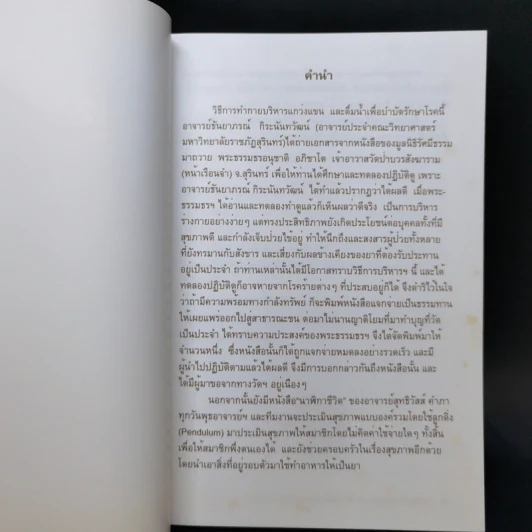 คำนำ
วิธีการทำกายบริหารแกว่งแขน และดื่มน้ำเพื่อบำบัดรักษาโรคนี้
อาจารย์ธันยาภรณ์ กิระนันทวัฒน์ (อาจารย์ประจำคณะวิทยาศาสตร์
มหาวิทยาลัยราชภัฏสุรินทร์)ได้ถ่ายเอกสารจากหนังสือของมูลนิธิรัศมีธรรม
มาถวาย พระธรรมธรอนุชาติ อภิชาโต เจ้าอาวาสวัดป่าบวรสังฆาราม
(หน้าเรือนจำ) จ.สุรินทร์ เพื่อให้ท่านได้ศึกษาและทดลองปฏิบัติดู เพราะ
อาจารย์ธันยาภรณ์ กิระนันทวัฒน์ ได้ทำแล้วปรากฏว่าได้ผลดี เมื่อพระ-
ธรรมธรฯ ได้อ่านและทดลองทำดูแล้วก็เห็นผลว่าดีจริง เป็นการบริหาร
ร่างกายอย่างง่ายๆ แต่ทรงประสิทธิภาพยังเกิดประโยชน์ต่อบุคคลทั้งที่มี
สุขภาพดี และกำลังเจ็บป่วยไข้อยู่ ทำให้นึกถึงและสงสารผู้ป่วยทั้งหลาย
ที่ยังทรมานกับสังขาร และเสี่ยงกับผลข้างเคียงของยาที่ต้องรับประทาน
อยู่เป็นประจำ ถ้าท่านเหล่านั้นได้มีโอกาสทราบวิธีการบริหารฯ นี้ และได้
ทดลองปฏิบัติดูก็อาจหายจากโรคร้ายต่างๆ ที่ประสบอยู่ก็ได้ จึงดำริไว้ในใจ
ว่าถ้ามีความพร้อมทางกำลังทรัพย์ ก็จะพิมพ์หนังสือแจกจ่ายเป็นธรรมทาน
ให้เผยแพร่ออกไปสู่สาธารณะชน ต่อมาไม่นานญาติโยมที่มาทำบุญที่วัด
เป็นประจำ ได้ทราบความประสงค์ของพระธรรมธรฯ จึงได้จัดพิมพ์มาให้
จำนวนหนึ่ง ซึ่งหนังสือนั้นก็ได้ถูกแจกจ่ายหมดลงอย่างรวดเร็ว และมี
ผู้นำไปปฏิบัติตามแล้วได้ผลดี จึงมีการบอกกล่าวกันถึงหนังสือนั้น และ
ได้มีผู้มาขอจากทางวัดฯ อยู่เนืองๆ
นอกจากนั้นยังมีหนังสือ"นาฬิกาชีวิต" ของอาจารย์สุทธิวัสส์ คำภา
ทุกวันพุธอาจารย์ฯ และทีมงานจะประเมินสุขภาพแบบองค์รวมโดยใช้ลูกดิ่ง
(Pendulum) มาประเมินสุขภาพให้สมาชิกโดยไม่คิดค่าใช้จ่ายใดๆ ทั้งสิ้น
เพื่อให้สมาชิกพึ่งตนเองได้ และยังช่วยครอบครัวในเรื่องสุขภาพอีกด้วย
โดยนำเอาสิ่งที่อยู่รอบตัวมาใช้ทำอาหารให้เป็นยา